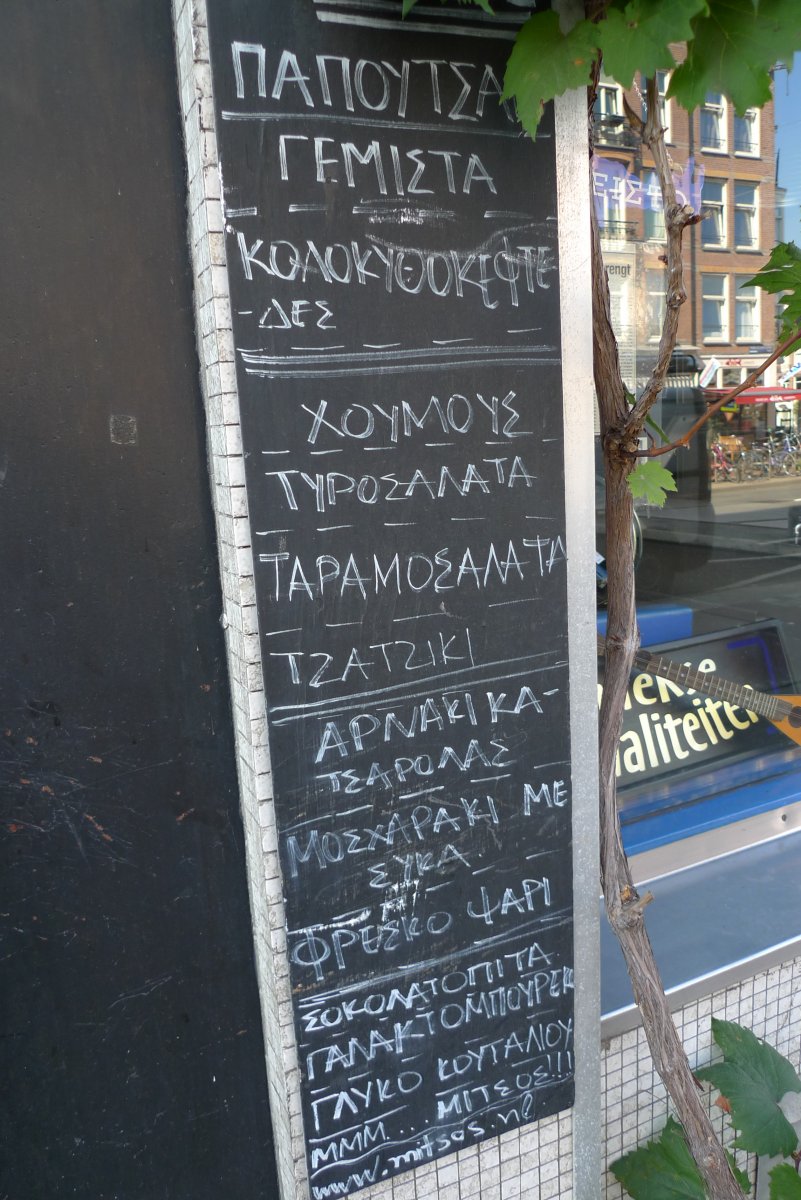 ΠΑΠΟΥΤΣΑ
ΓΕΜΙΣΤΑ
ΚΟΛΟΚΥΘΟΚΕΦΤΕ
-ΔΕΣ
ΧΟΥΜΟΥΣ
ΤΥΡΟΣΑΛΑΤΑ
ΤΑΡΑΜΟΣΑΛΑΤΑ
ΤΖΑΤΖΙΚΙ
ΑΡΝΑΚΙ ΚΑ-
ΤΣΑΡΟΛΑΣ
ΜΟΣΧΑΡΑΚΙ ΜΕ
ΣΥΚΑ.
ΦΡΕΣΚΟ ΨΑΡΙ
ΣΟΚΟΛΑΤΟΠΙΤΑ
ΓΑΛΑΚΤΟΜΠΟΥΡΕΚ
ΓΛΥΚΟ ΚΟΥΤΑΛΙΟΥ
ΜΜΜ...ΜΙΤΣΟΣ!!!
www.mitsos.nl
rengt
aliteiten